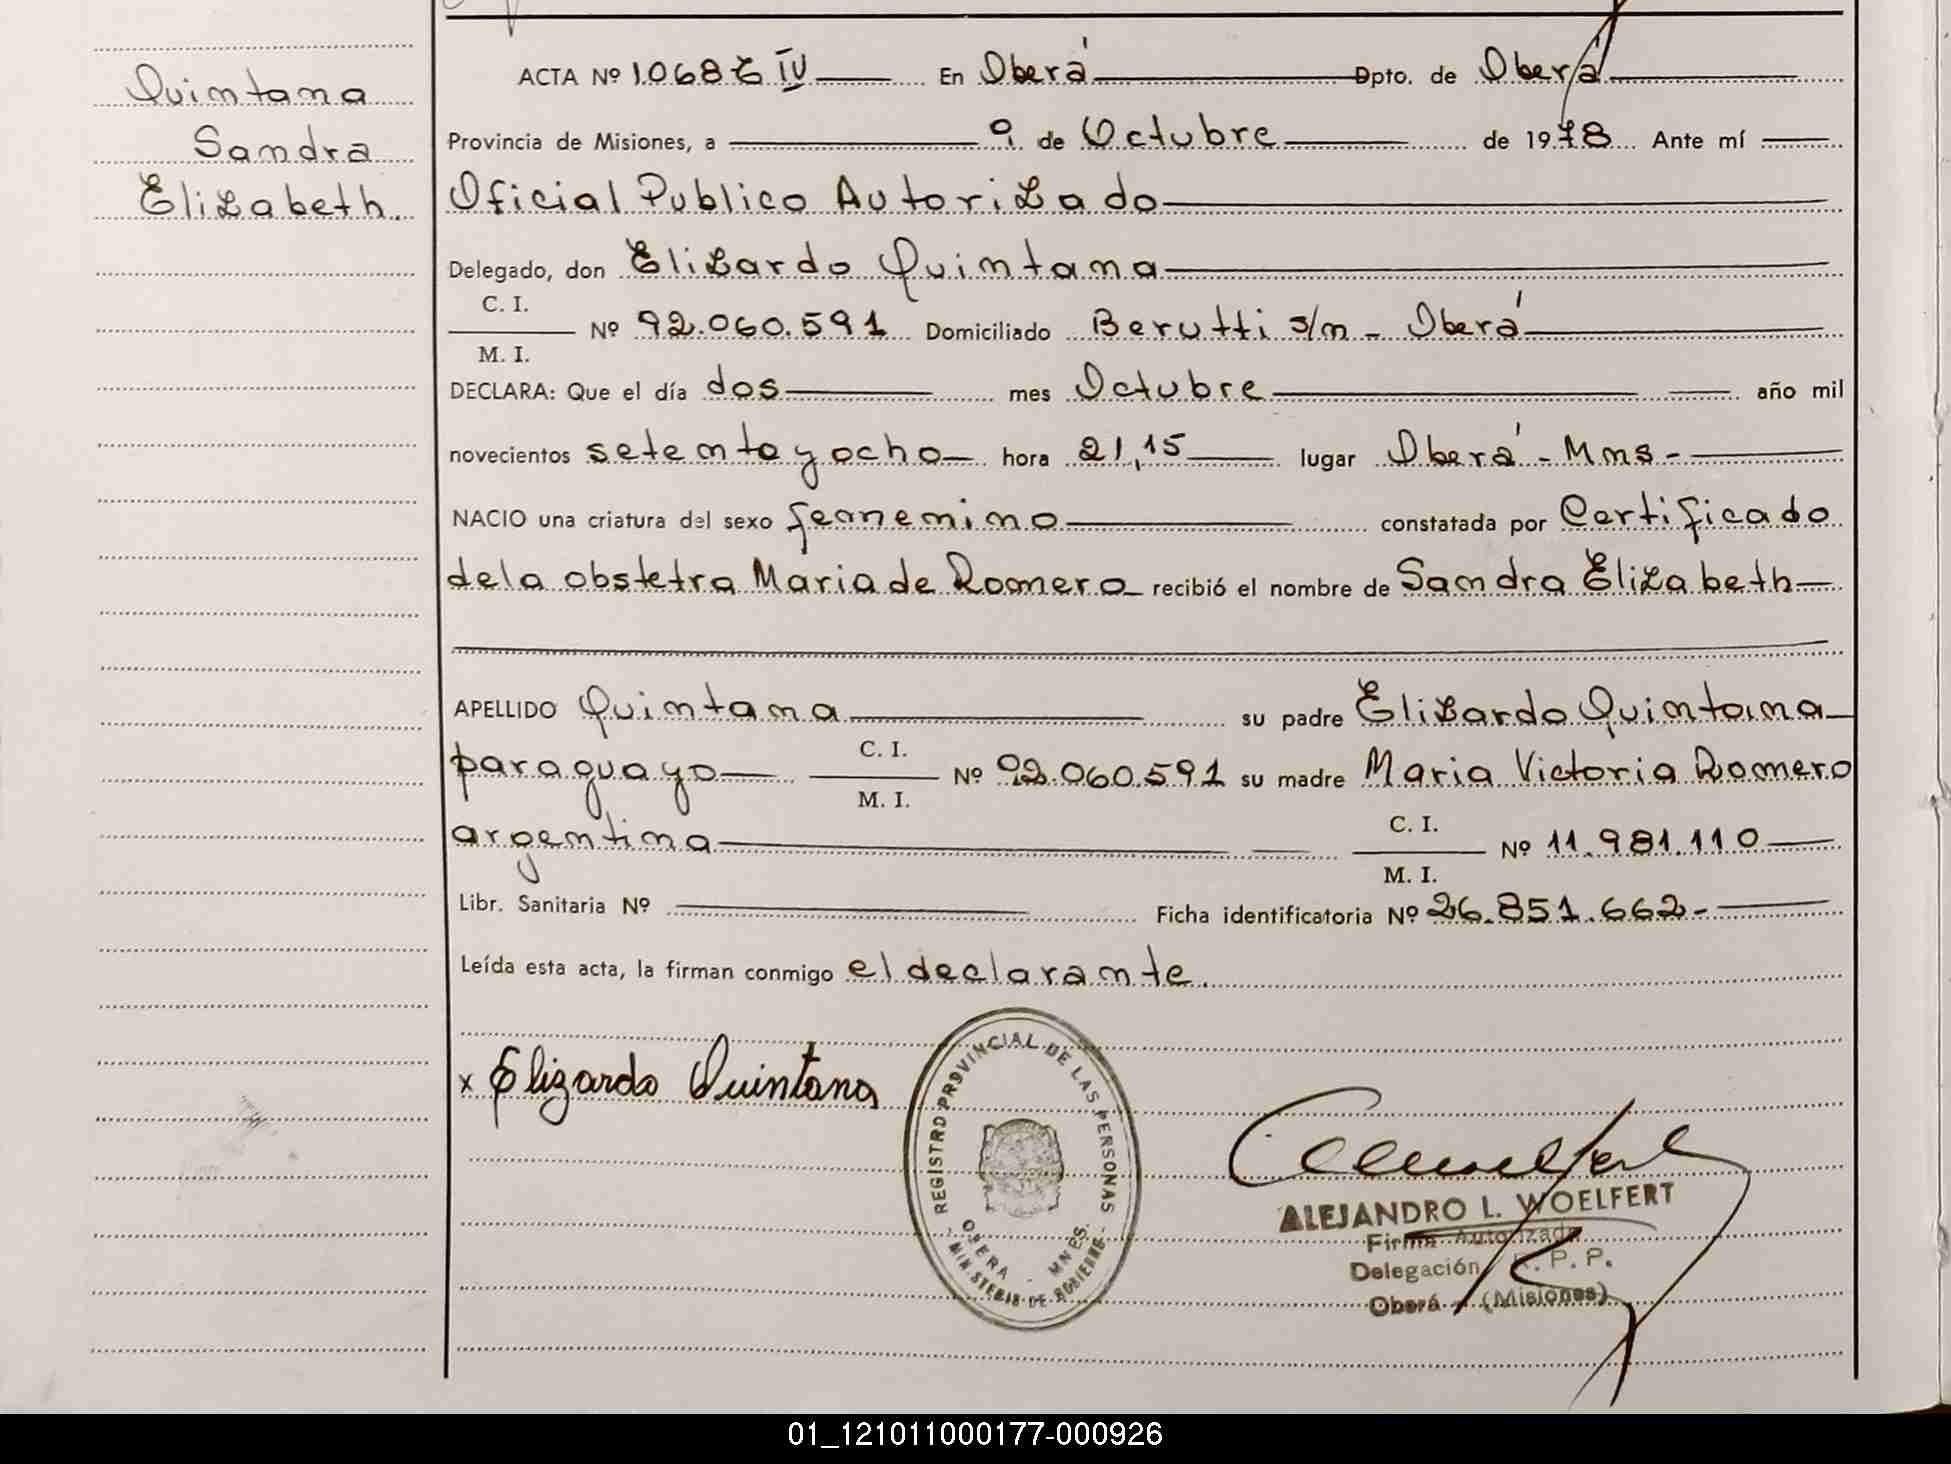 Quintana
Sandra
Elizabeth.
ACTA Nº 1.068 T IV En Oberá Dpto. de Oberá
Provincia de Misiones, a 9 de Octubre de 1978 Ante mí
Oficial Publico Autorizado
Delegado, don Elizardo Quintana
C. I.
Nº 92.060.591 Domiciliado Berutti s/n - Oberá
M. I.
DECLARA: Que el día dos mes Octubre año mil
novecientos setenta y ocho hora 21,15 lugar Oberá - Mnes -
NACIO una criatura del sexo femenino constatada por Certificado
de la obstetra Maria de Romero recibió el nombre de Sandra Elizabeth
APELLIDO Quintana su padre Elizardo Quintana
paraguayo C. I. Nº 92.060.591 su madre Maria Victoria Romero
M. I.
argentina C. I. Nº 11.981.110
M. I.
Libr. Sanitaria Nº Ficha identificatoria Nº 26.851.662-
Leída esta acta, la firman conmigo el declarante.
x Elizardo Quintana
REGISTRO PROVINCIAL DE LAS PERSONAS
OBERA - MNES.
- MINISTERIO DE GOBIERNO -
ALEJANDRO L. WOELFERT
Firma Autorizada
Delegación R. P. P.
Oberá - (Misiones)
01_121011000177-000926